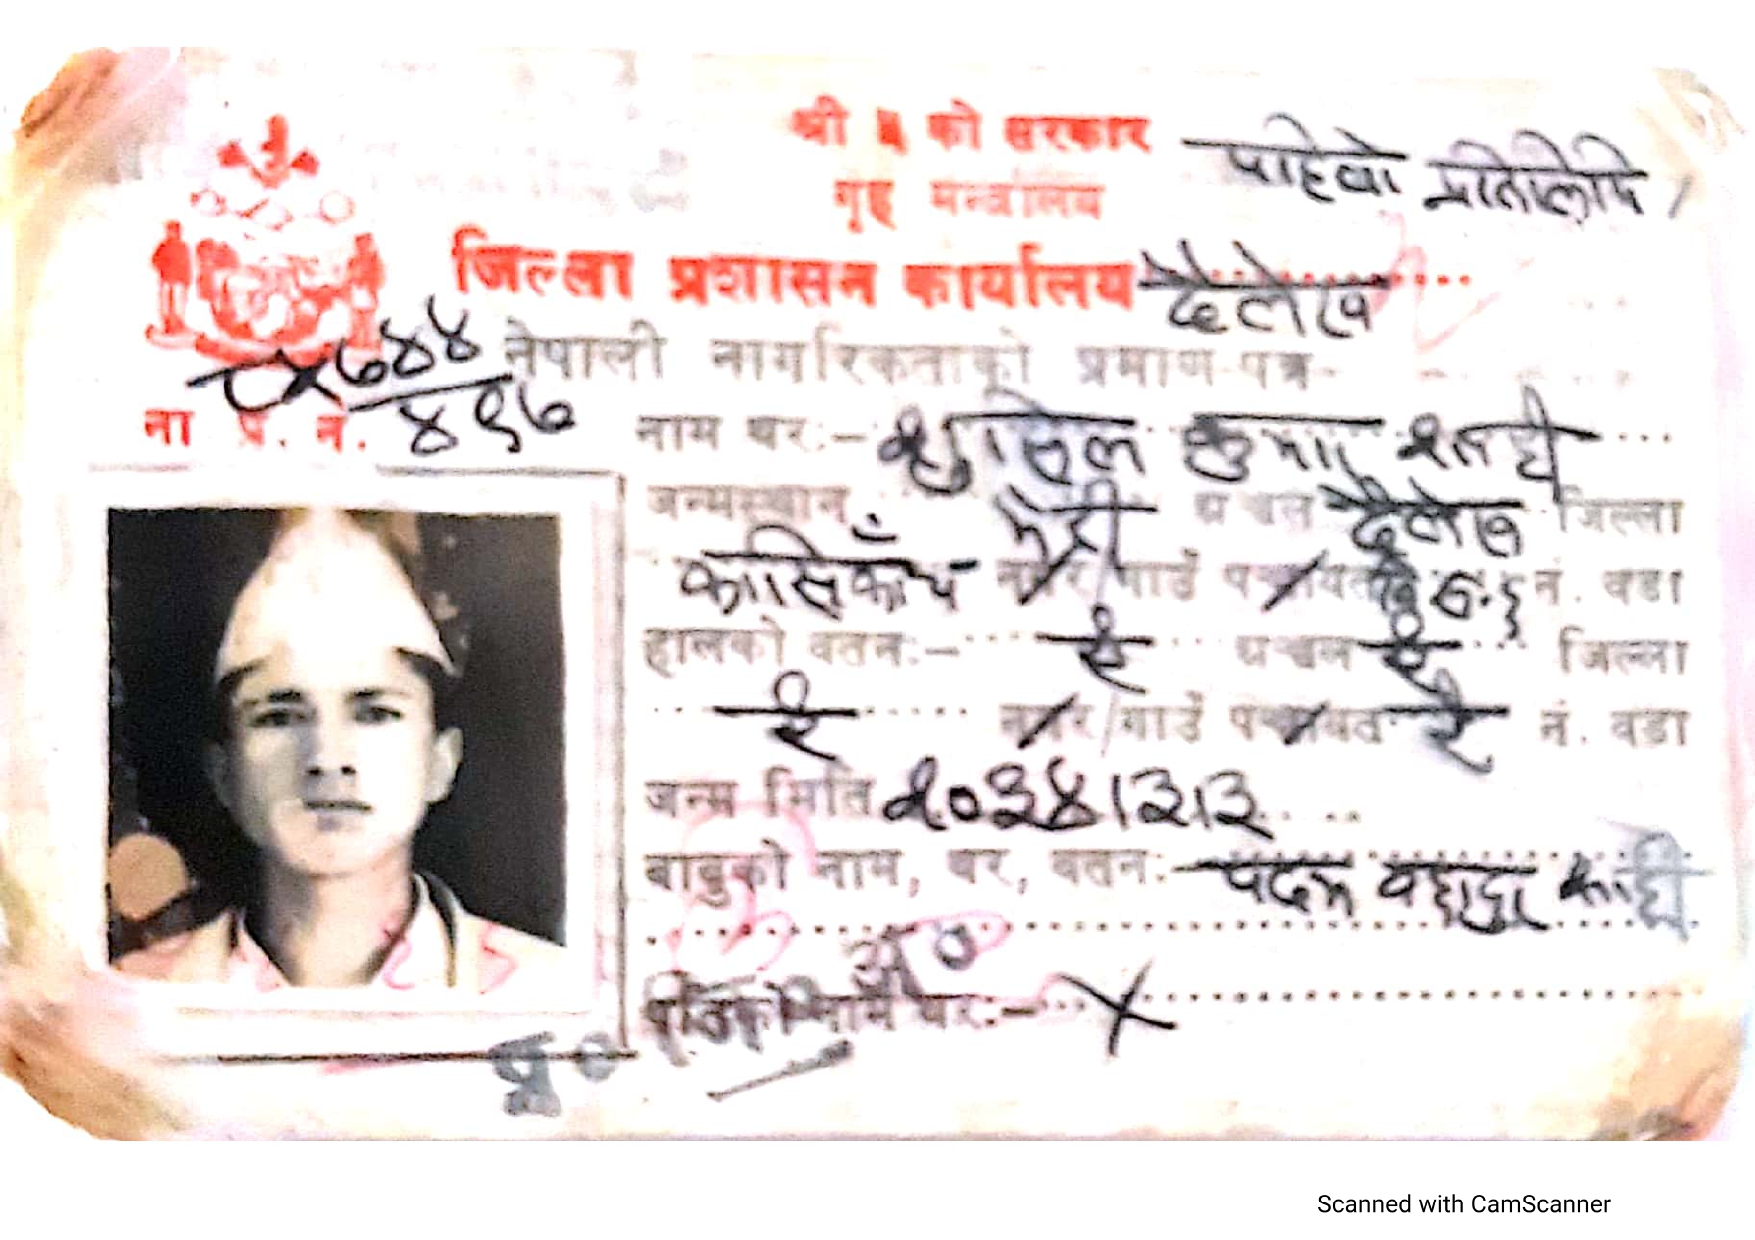 श्री ५ को सरकार
पहिलो प्रतिलिपि
गृह मन्त्रालय
जिल्ला प्रशासन कार्यालय दैलेख
नेपाली नागरिकताको प्रमाण-पत्र
ना. प्र. नं.
नाम थर:- कुमार शाही
जन्मस्थान भेरी अञ्चल दैलेख जिल्ला
नगर/गाउँ पञ्चायत नं. वडा
हालको वतन:- ऐ अञ्चल ऐ जिल्ला
ऐ नगर/गाउँ पञ्चायत ऐ नं. वडा
जन्म मिति २०३४।३।३
बाबुको नाम, थर, वतन: पदम बहादुर शाही
पतिको नाम थर:- X
Scanned with CamScanner